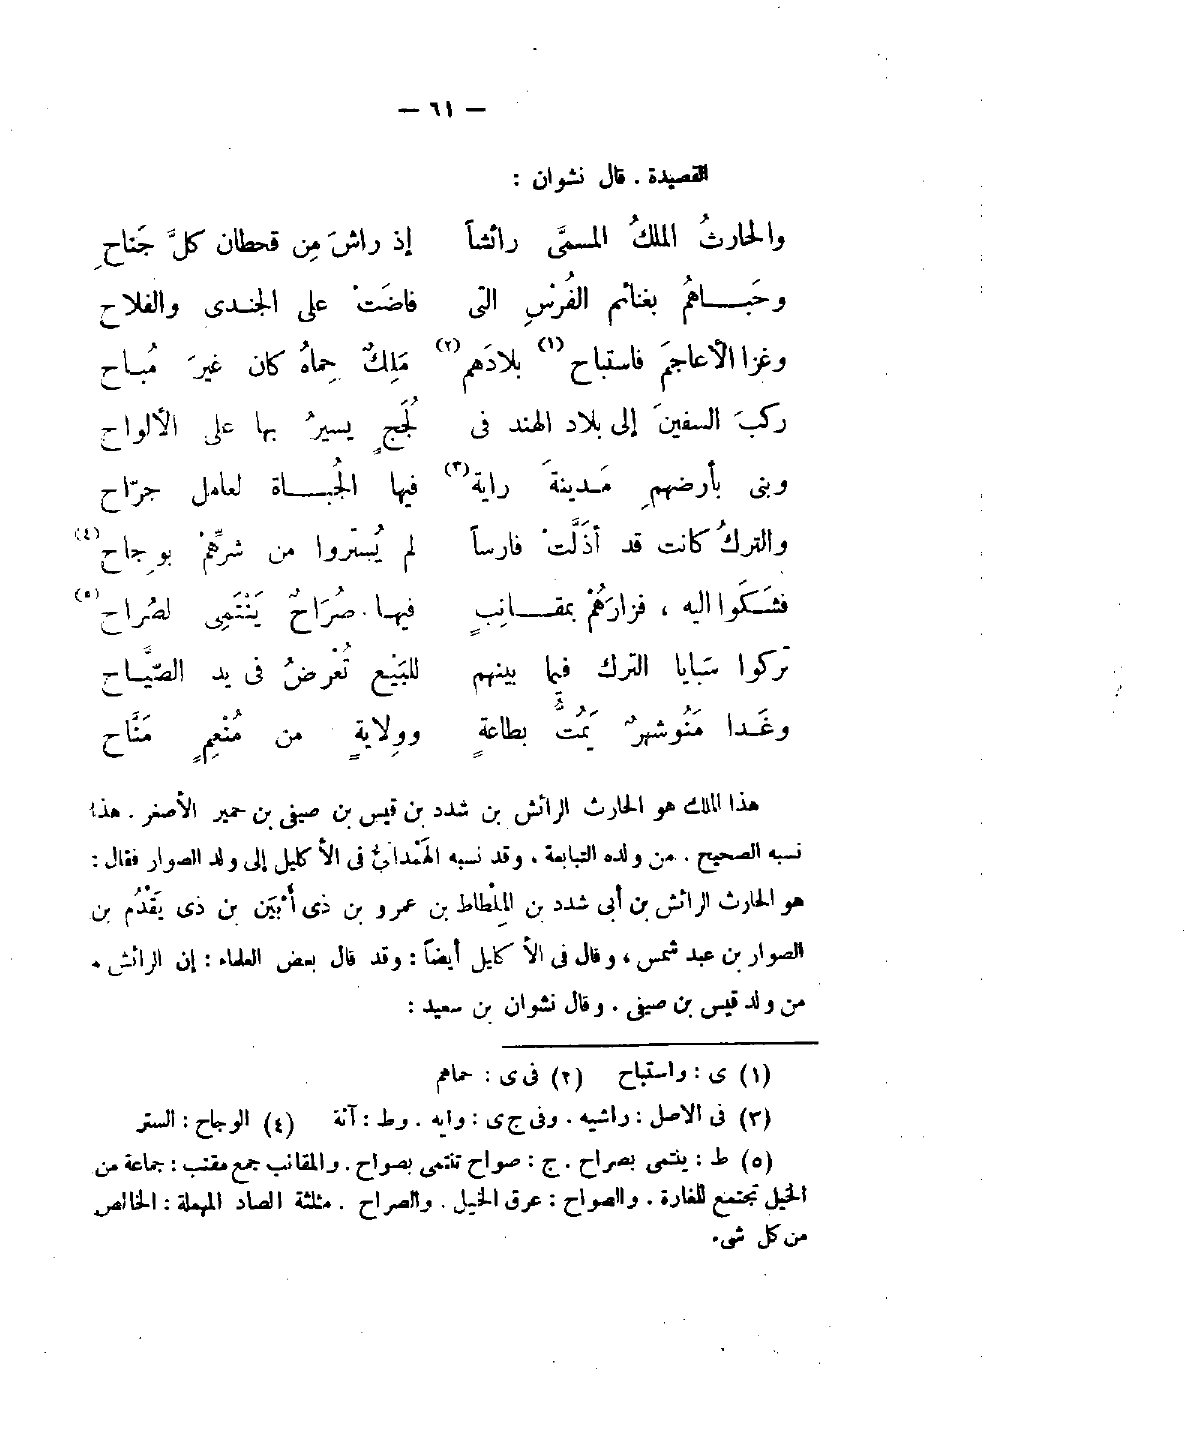 — ٦١ —
القصيدة . قال نشوان :
والحارثُ الملكُ المسمَّى رائشاً إذ راشَ مِن قحطان كلَّ جَناحِ
وحَبــاهُم بغنائم الفُرْسِ التى فاضَتْ على الجندى والفلاح
وغزا الأعاجمَ فاستباح(١) بلادَهم(٢) مَلِكٌ حِماهُ كان غيرَ مُباح
ركبَ السفينَ إلى بلاد الهند فى لُجَجٍ يسيرُ بها على الألواح
وبنى بأرضهمِ مَـدينةَ راية(٣) فيها الجُبــاة لعامل جرّاح
والتركُ كانت قد أذَلَّتْ فارساً لم يُستروا من شرِّهمْ بوِجاح(٤)
فشَـكَوا اليه ، فزارَهُمْ بمقـانِبٍ فيهـا صُرَاحٌ يَنْتَمِى لصُراح(٥)
تركوا سَبايا الترك فيما بينهم للبَيْع تُعْرضُ فى يد الصّيَّـاح
وغَـدا مَنُوشهرٌ يَمُتُّ بطاعةٍ وولايةٍ من مُنْعِمٍ مَنَّاح
هذا الملك هو الحارث الرائش بن شدد بن قيس بن صيفى بن حمير الأصغر . هذا
نسبه الصحيح . من ولده التبابعة ، وقد نسبه الهَمْدانىُّ فى الأكليل إلى ولد الصوار فقال :
هو الحارث الرائش بن أبى شدد بن المِلْطاط بن عمرو بن ذى أَبْيَن بن ذى يَقْدُم بن
الصوار بن عبد شمس ، وقال فى الأكليل أيضاً : وقد قال بعض العلماء : إن الرائش
من ولد قيس بن صيفى . وقال نشوان بن سعيد :
(١) ى : واستباح (٢) فى ى : حماهم
(٣) فى الاصل : راشيه . وفى ج ى : وايه . وط : آنة (٤) الوجاح : الستر
(٥) ط : ينتمى بصراح . ج : صواح تنتمى بصواح . والمقانب جمع مقنب : جماعة من
الخيل تجتمع للغارة . والصواح : عرق الخيل . والصراح . مثلثة الصاد المهملة : الخالص
من كل شىء